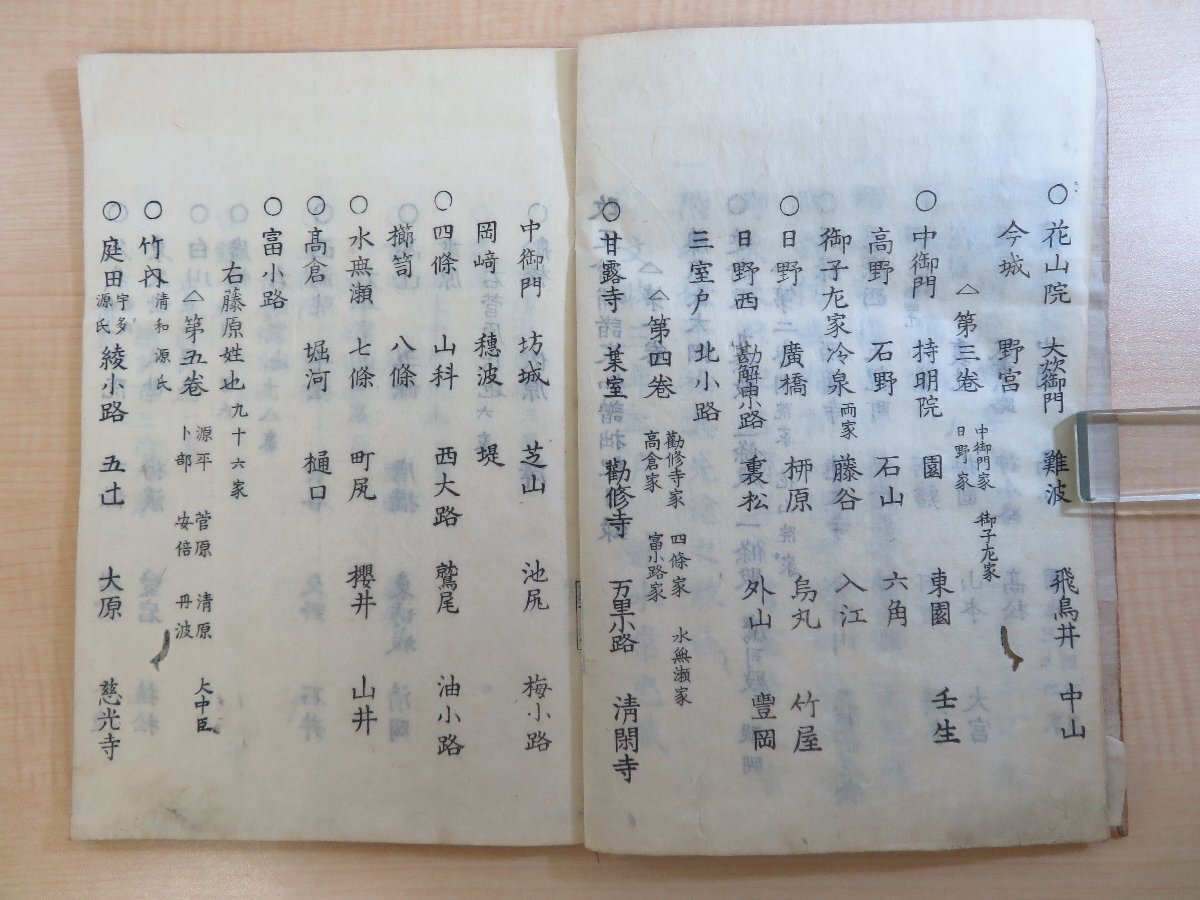 ○花山院 大炊御門 難波 飛鳥井 中山
今城 野宮
△第三巻 中御門家 日野家 御子左家
○中御門 持明院 園 東園 壬生
高野 石野 石山 六角
御子左家冷泉両家 藤谷 入江
○日野 廣橋 栁原 烏丸 竹屋
日野西 勘解由小路 裏松 外山 豊岡
三室戸 北小路
△第四巻 勸修寺家 高倉家 四條家 富小路家 水無瀬家
○甘露寺 葉室 勸修寺 万里小路 清閑寺
中御門 坊城 芝山 池尻 梅小路
岡﨑 穂波 堤
○四條 山科 西大路 鷲尾 油小路
櫛笥 八條
○水無瀬 七條 町尻 櫻井 山井
○髙倉 堀河 樋口
○富小路
右藤原姓也九十六家
△第五巻 源平 卜部 菅原 安倍 清原 丹波 大中臣
○竹内清和源氏
○庭田宇多源氏 綾小路 五辻 大原 慈光寺